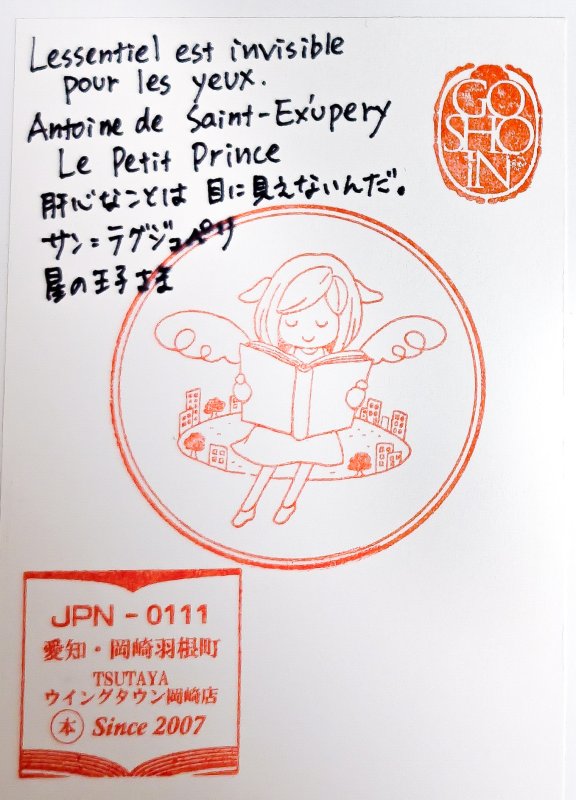 Lessentiel est invisible
pour les yeux.
Antoine de Saint-Ex'upery
Le Petit Prince
肝心なことは 目に見えないんだ。
サン=ラグジュペリ
星の王子さま
GO
SHO
iN
JPN-0111
愛知・岡崎羽根町
TSUTAYA
ウイングタウン岡崎店
本 Since 2007